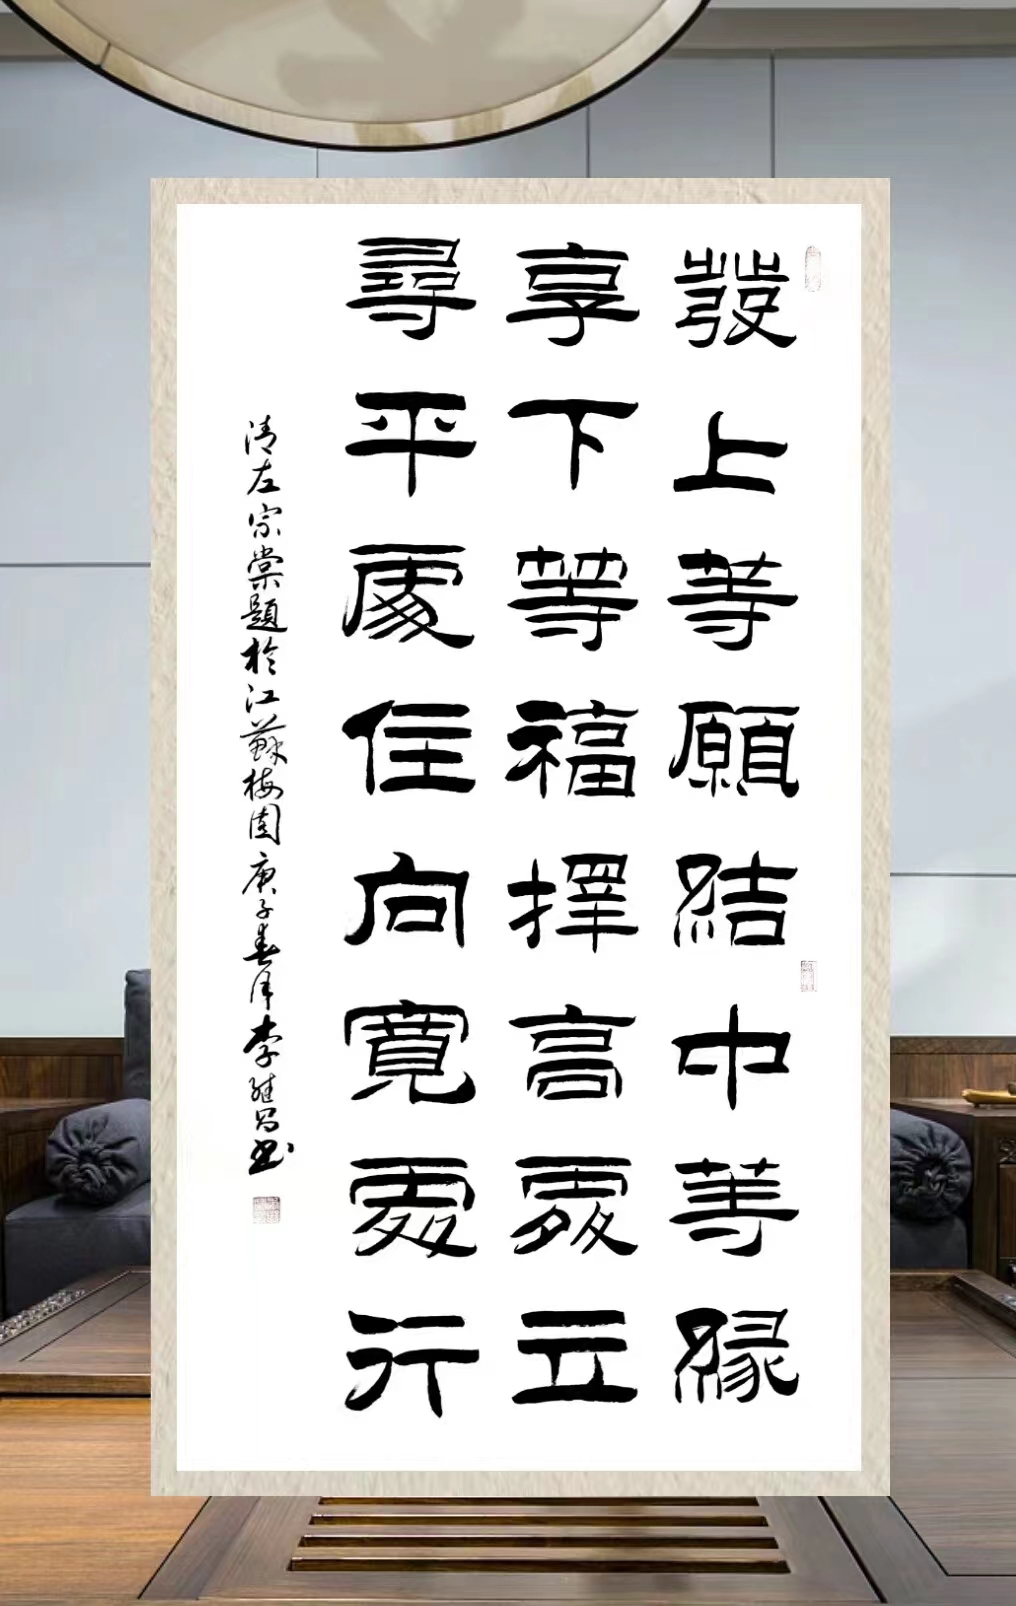 發上等願結中等緣
享下等福擇高處立
尋平處住向寬處行
清左宗棠題於江蘇梅園庚子春月李維昌書